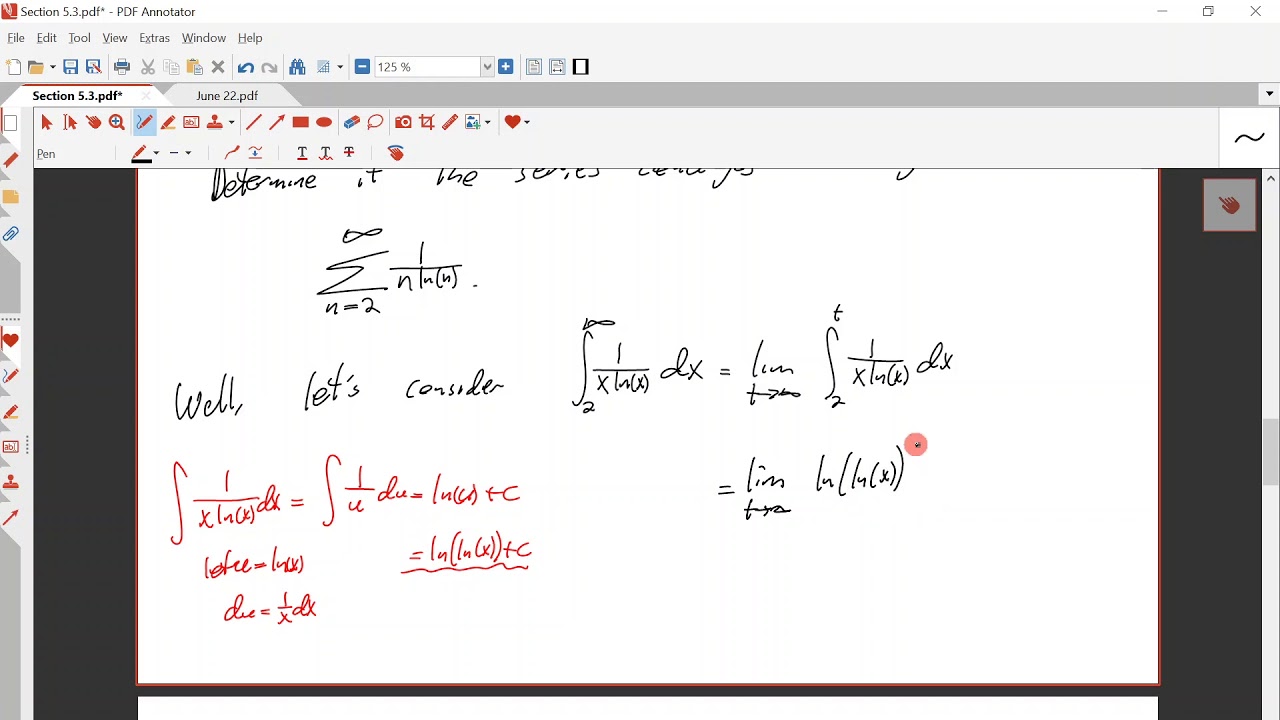 Section 5.3.pdf* - PDF Annotator
File Edit Tool View Extras Window Help
125 %
Section 5.3.pdf* June 22.pdf
Pen
Determine if the series
∞
∑ 1/(n ln(n)) .
n=2
Well, let's consider ∫₂^∞ 1/(x ln(x)) dx = lim t→∞ ∫₂^t 1/(x ln(x)) dx
= lim t→∞ ln(ln(x))
∫ 1/(x ln(x)) dx = ∫ 1/u du = ln(u) + C
let u = ln(x) = ln(ln(x)) + C
du = 1/x dx